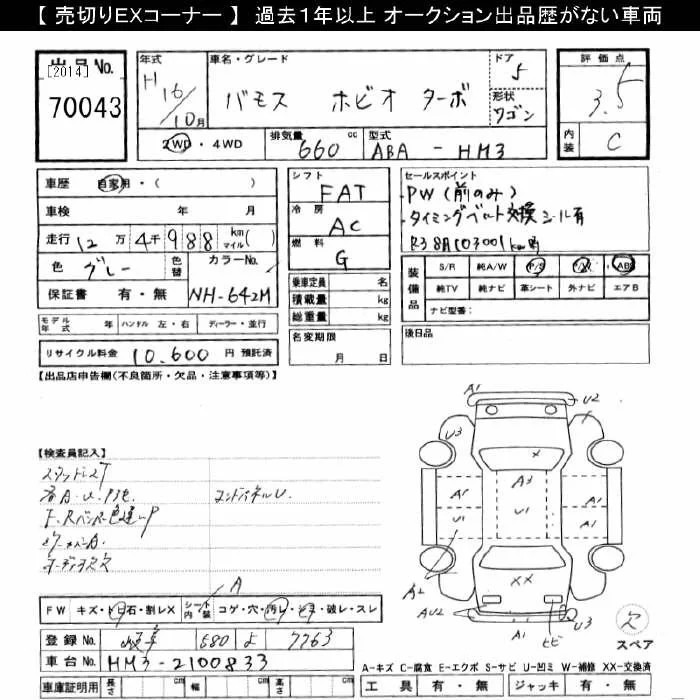 【 売切りEXコーナー 】 過去１年以上 オークション出品歴がない車両
出品 No.
[2014]
70043
年式
H 16/10月
車名・グレード
バモス ホビオ ターボ
ドア
5
形状
ワゴン
評価点
3.5
内装
C
2WD・4WD
排気量 660 cc
型式 ABA - HM3
車歴 自家用・( )
車検 年 月
走行 12万 4千 988 km マイル( )
色 グレー
色替
カラーNo. NH-642M
保証書 有・無
シフト FAT
冷房 AC
燃料 G
乗車定員 名
積載量 kg
総重量 kg
名変期限 月 日
セールスポイント
・PW(前のみ)
・タイミングベルト交換シール有
R3 8月 103001km時
装備品
S/R 純A/W P/S P/W ABS
純TV 純ナビ 革シート 外ナビ エアB
ナビ型番：
モデル年式 年 ハンドル 左・右 ディーラー・並行
後日品
リサイクル料金 10,600 円 預託済
【出品店申告欄(不良箇所・欠品・注意事項等)】
【検査員記入】
スタッドレスT
F、Rバンパー色違いP
コンドパネルU
A
FW キズ・トビ石・割レX シート内装 コゲ・穴・汚レ・シミ・破レ・スレ
登録 No. 岐阜 580 よ 7763
車台 No. HM3-2100833
車庫証明用 長さ cm 幅 cm 高さ cm
A1
U2
U3
X
A3
A1
A1
U1
U1
U1
A2
XX
AU2
A1
ヒビ
U3
欠
スペア
A-キズ C-腐食 E-エクボ S-サビ U-凹ミ W-補修 XX-交換済
工具 有・無 ジャッキ 有・無